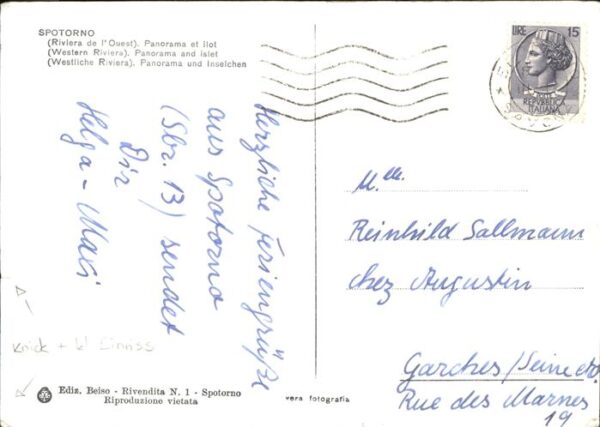 SPOTORNO
(Riviera de l'Ouest). Panorama et îlot
(Western Riviera). Panorama and islet
(Westliche Riviera). Panorama und Inselchen
LIRE 15
REPVBBLICA
ITALIANA
Herzliche Feriengrüße
aus Spotorno
(Sbr. 13) sendet
Dir
Helga-Mari
Mlle.
Reinhild Sallmann
chez Augustin
Garches/Seine et O.
Rue des Marnes
19
Knick + kl Einriss
Ediz. Beiso - Rivendita N. 1 - Spotorno
Riproduzione vietata
vera fotografia